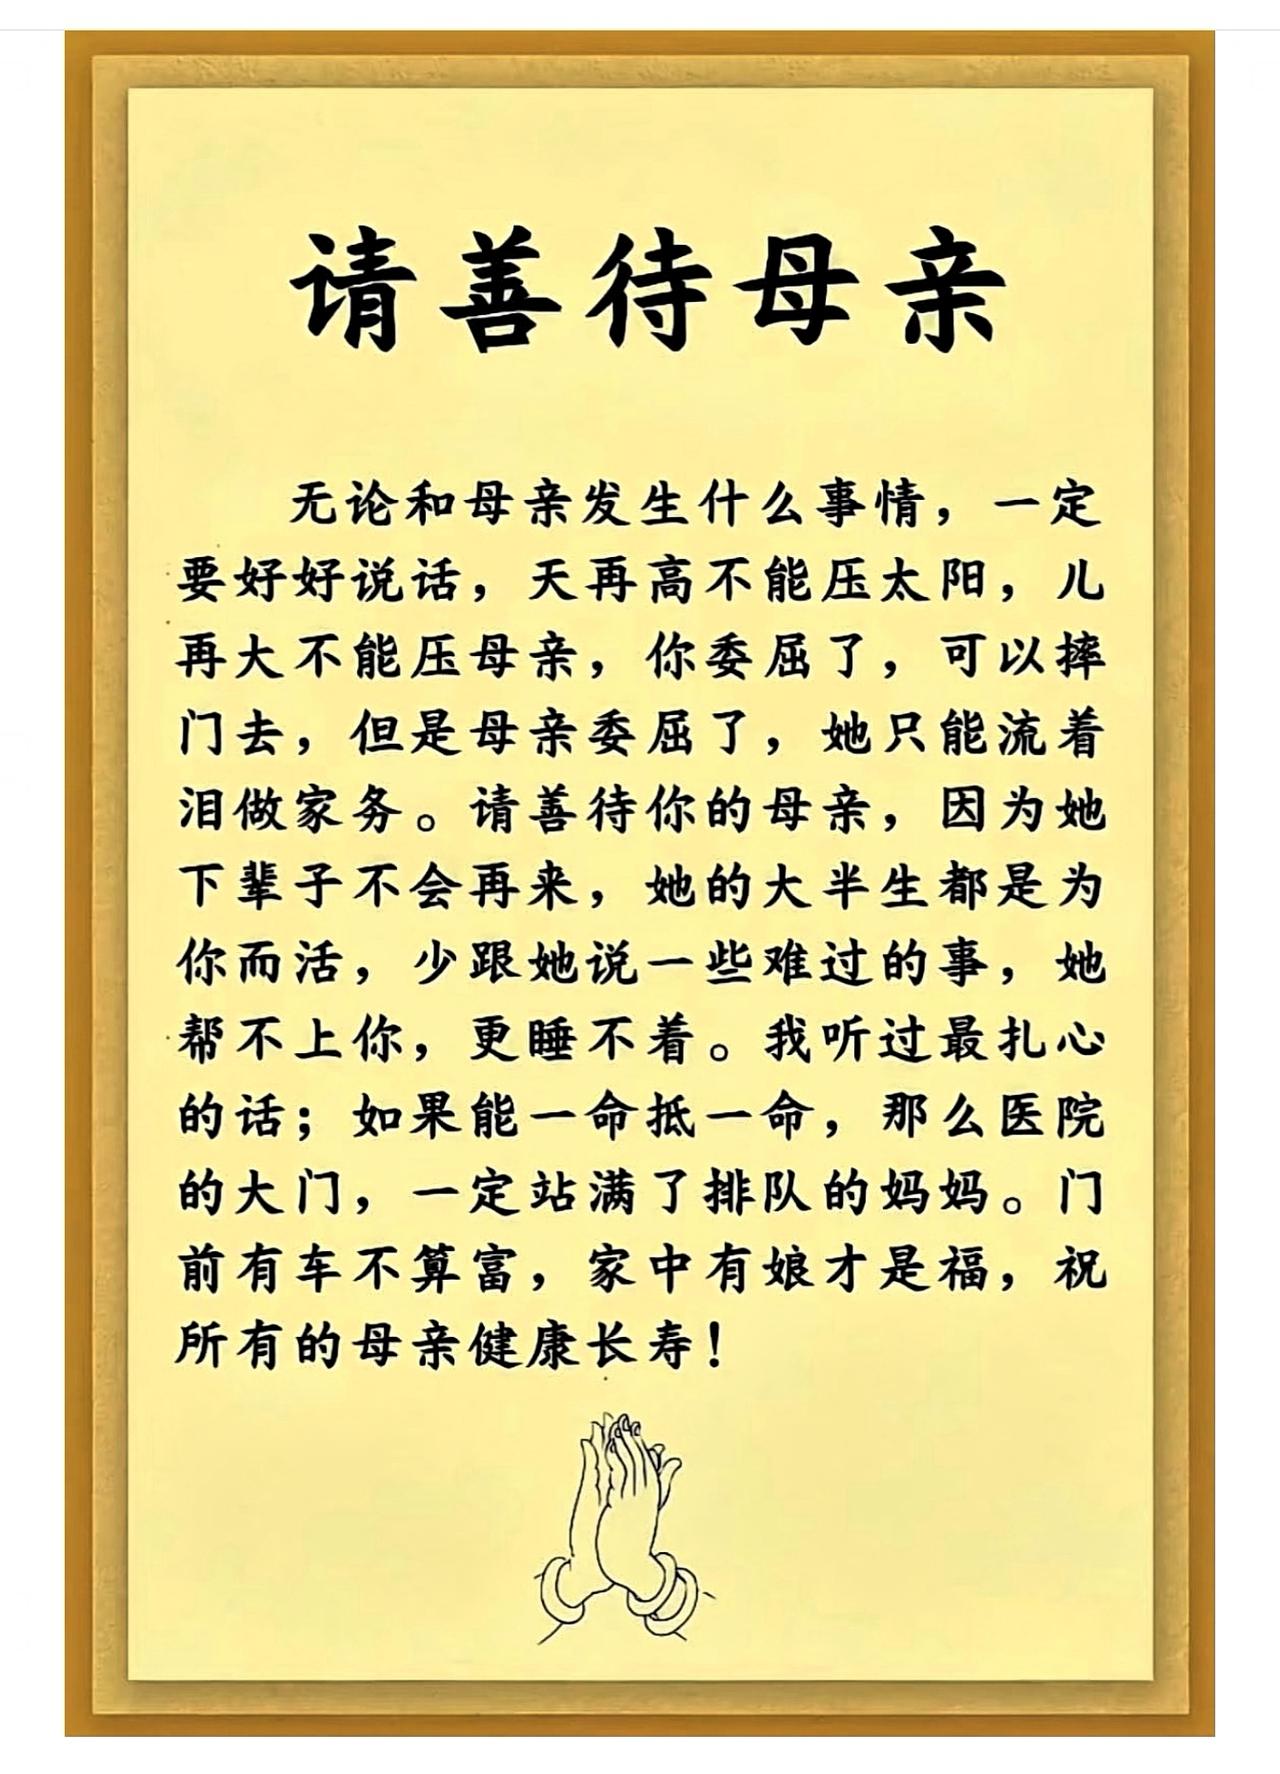 请善待母亲
无论和母亲发生什么事情，一定
要好好说话，天再高不能压太阳，儿
再大不能压母亲，你委屈了，可以摔
门去，但是母亲委屈了，她只能流着
泪做家务。请善待你的母亲，因为她
下辈子不会再来，她的大半生都是为
你而活，少跟她说一些难过的事，她
帮不上你，更睡不着。我听过最扎心
的话；如果能一命抵一命，那么医院
的大门，一定站满了排队的妈妈。门
前有车不算富，家中有娘才是福，祝
所有的母亲健康长寿！